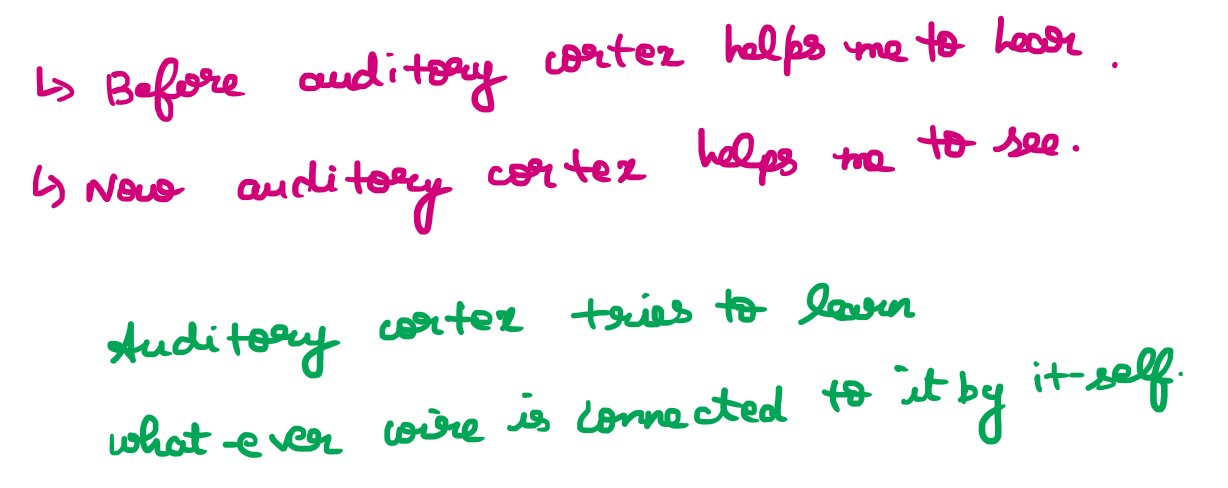 ↳ Before auditory cortex helps me to hear.
↳ Now auditory cortex helps me to see.
Auditory cortex tries to learn
what-ever wire is connected to it by it-self.